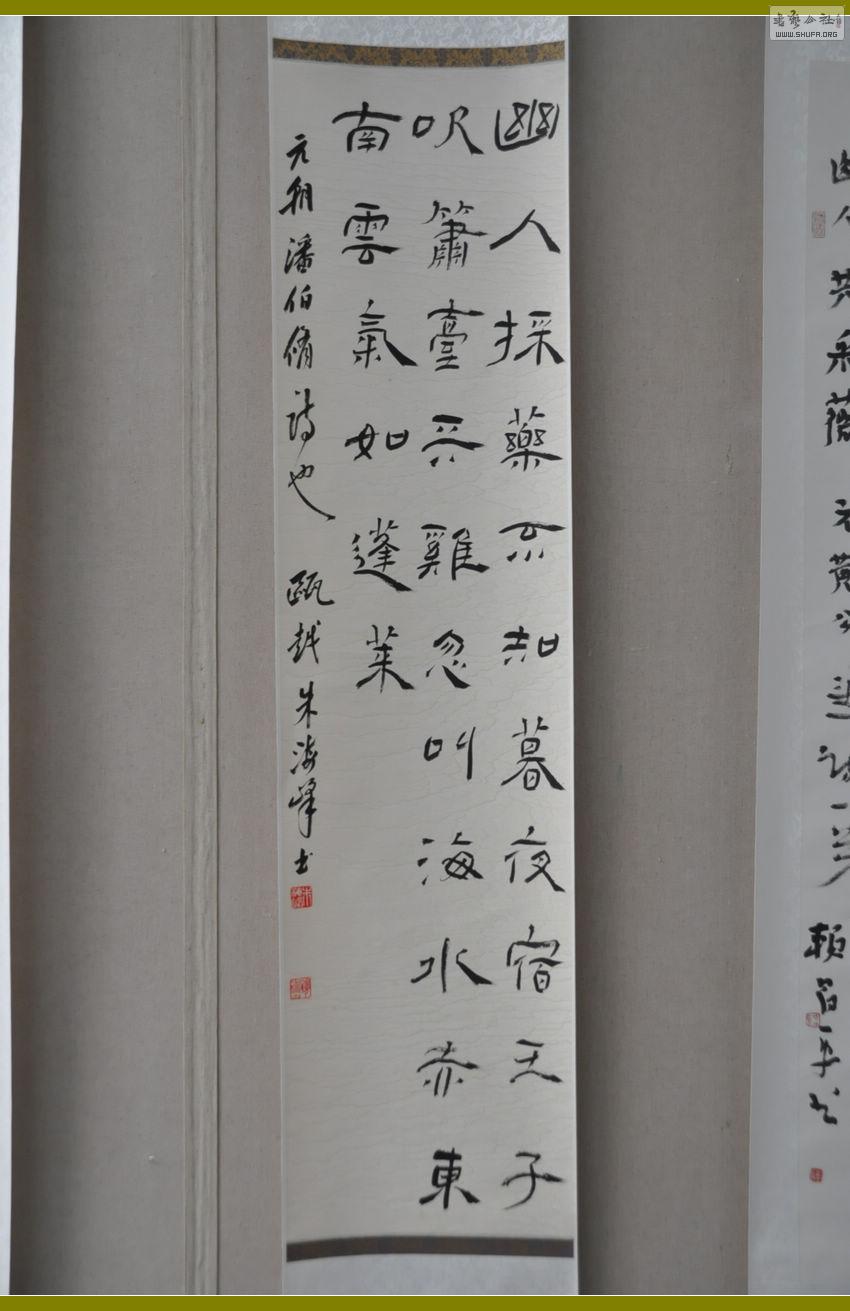 幽人採藥不知暮夜宿天子
吹簫臺天雞忽叫海水赤東
南雲氣如蓬萊
元朝潘伯脩詩也 甌越朱海峰书
書藝公社
WWW.SHUFA.ORG